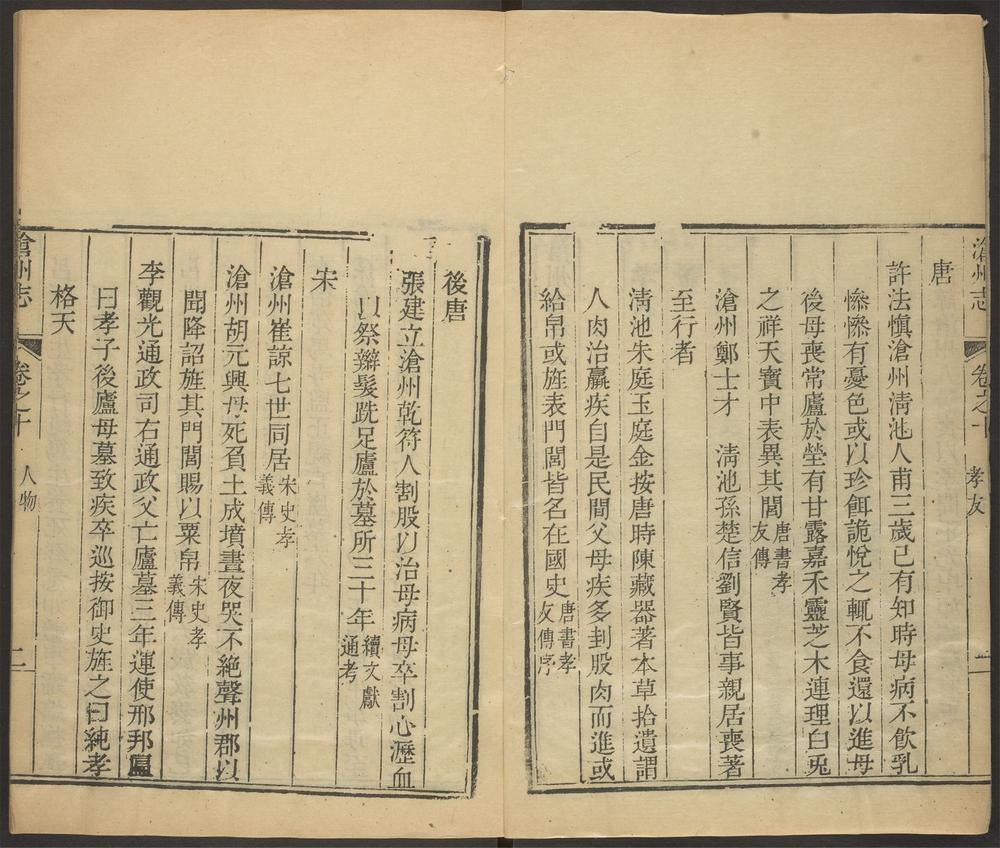 滄州志 卷之十 孝友 一
唐
許法愼滄州清池人甫三歲已有知時母病不飲乳
慘慘有憂色或以珍餌詭悅之輒不食還以進母
後母喪常廬於塋有甘露嘉禾靈芝木連理白兎
之祥天寶中表異其閭唐書孝友傳
滄州鄭士才 清池孫楚信劉賢皆事親居喪著
至行者
清池朱庭玉庭金按唐時陳藏器著本草拾遺謂
人肉治羸疾自是民間父母疾多刲股肉而進或
給帛或旌表門閭皆名在國史唐書孝友傳序
後唐
張建立滄州乾符人割股以治母病母卒割心瀝血
以祭辮髮跣足廬於墓所三十年續文獻通考
宋
滄州崔諒七世同居宋史孝義傳
滄州胡元興母死負土成墳晝夜哭不絕聲州郡以
聞降詔旌其門閭賜以粟帛宋史孝義傳
李觀光通政司右通政父亡廬墓三年運使邢邦匾
曰孝子後廬母墓致疾卒巡按御史旌之曰純孝
格天
滄州志 卷之十 人物 二